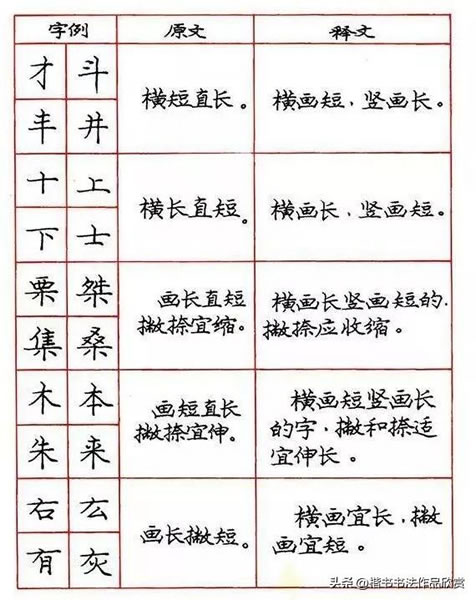 字例 原文 释文
才 斗
横短直长。 横画短，竖画长。
丰 井
十 上
横长直短。 横画长，竖画短。
下 士
栗 桀 画长直短 横画长竖画短的，
集 桑 撇捺宜缩。 撇捺应收缩。
木 本 画短直长 横画短竖画长
撇捺宜伸。 的字，撇和捺适
朱 来 宜伸长。
右 厷 横画宜长，撇
画长撇短。
有 灰 画宜短。
头条@楷书书法作品欣赏